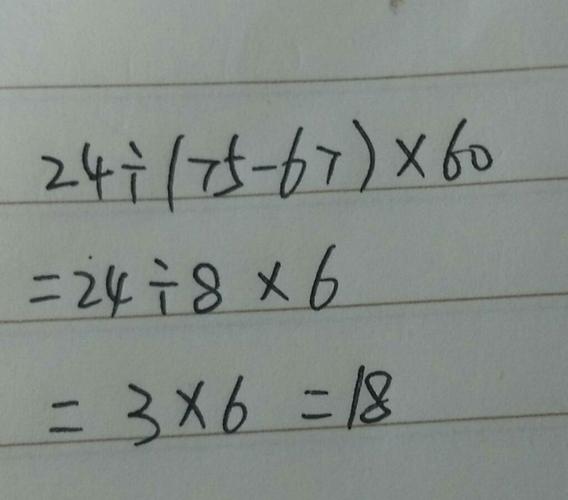 24÷(75-67)×60
=24÷8×6
=3×6=18